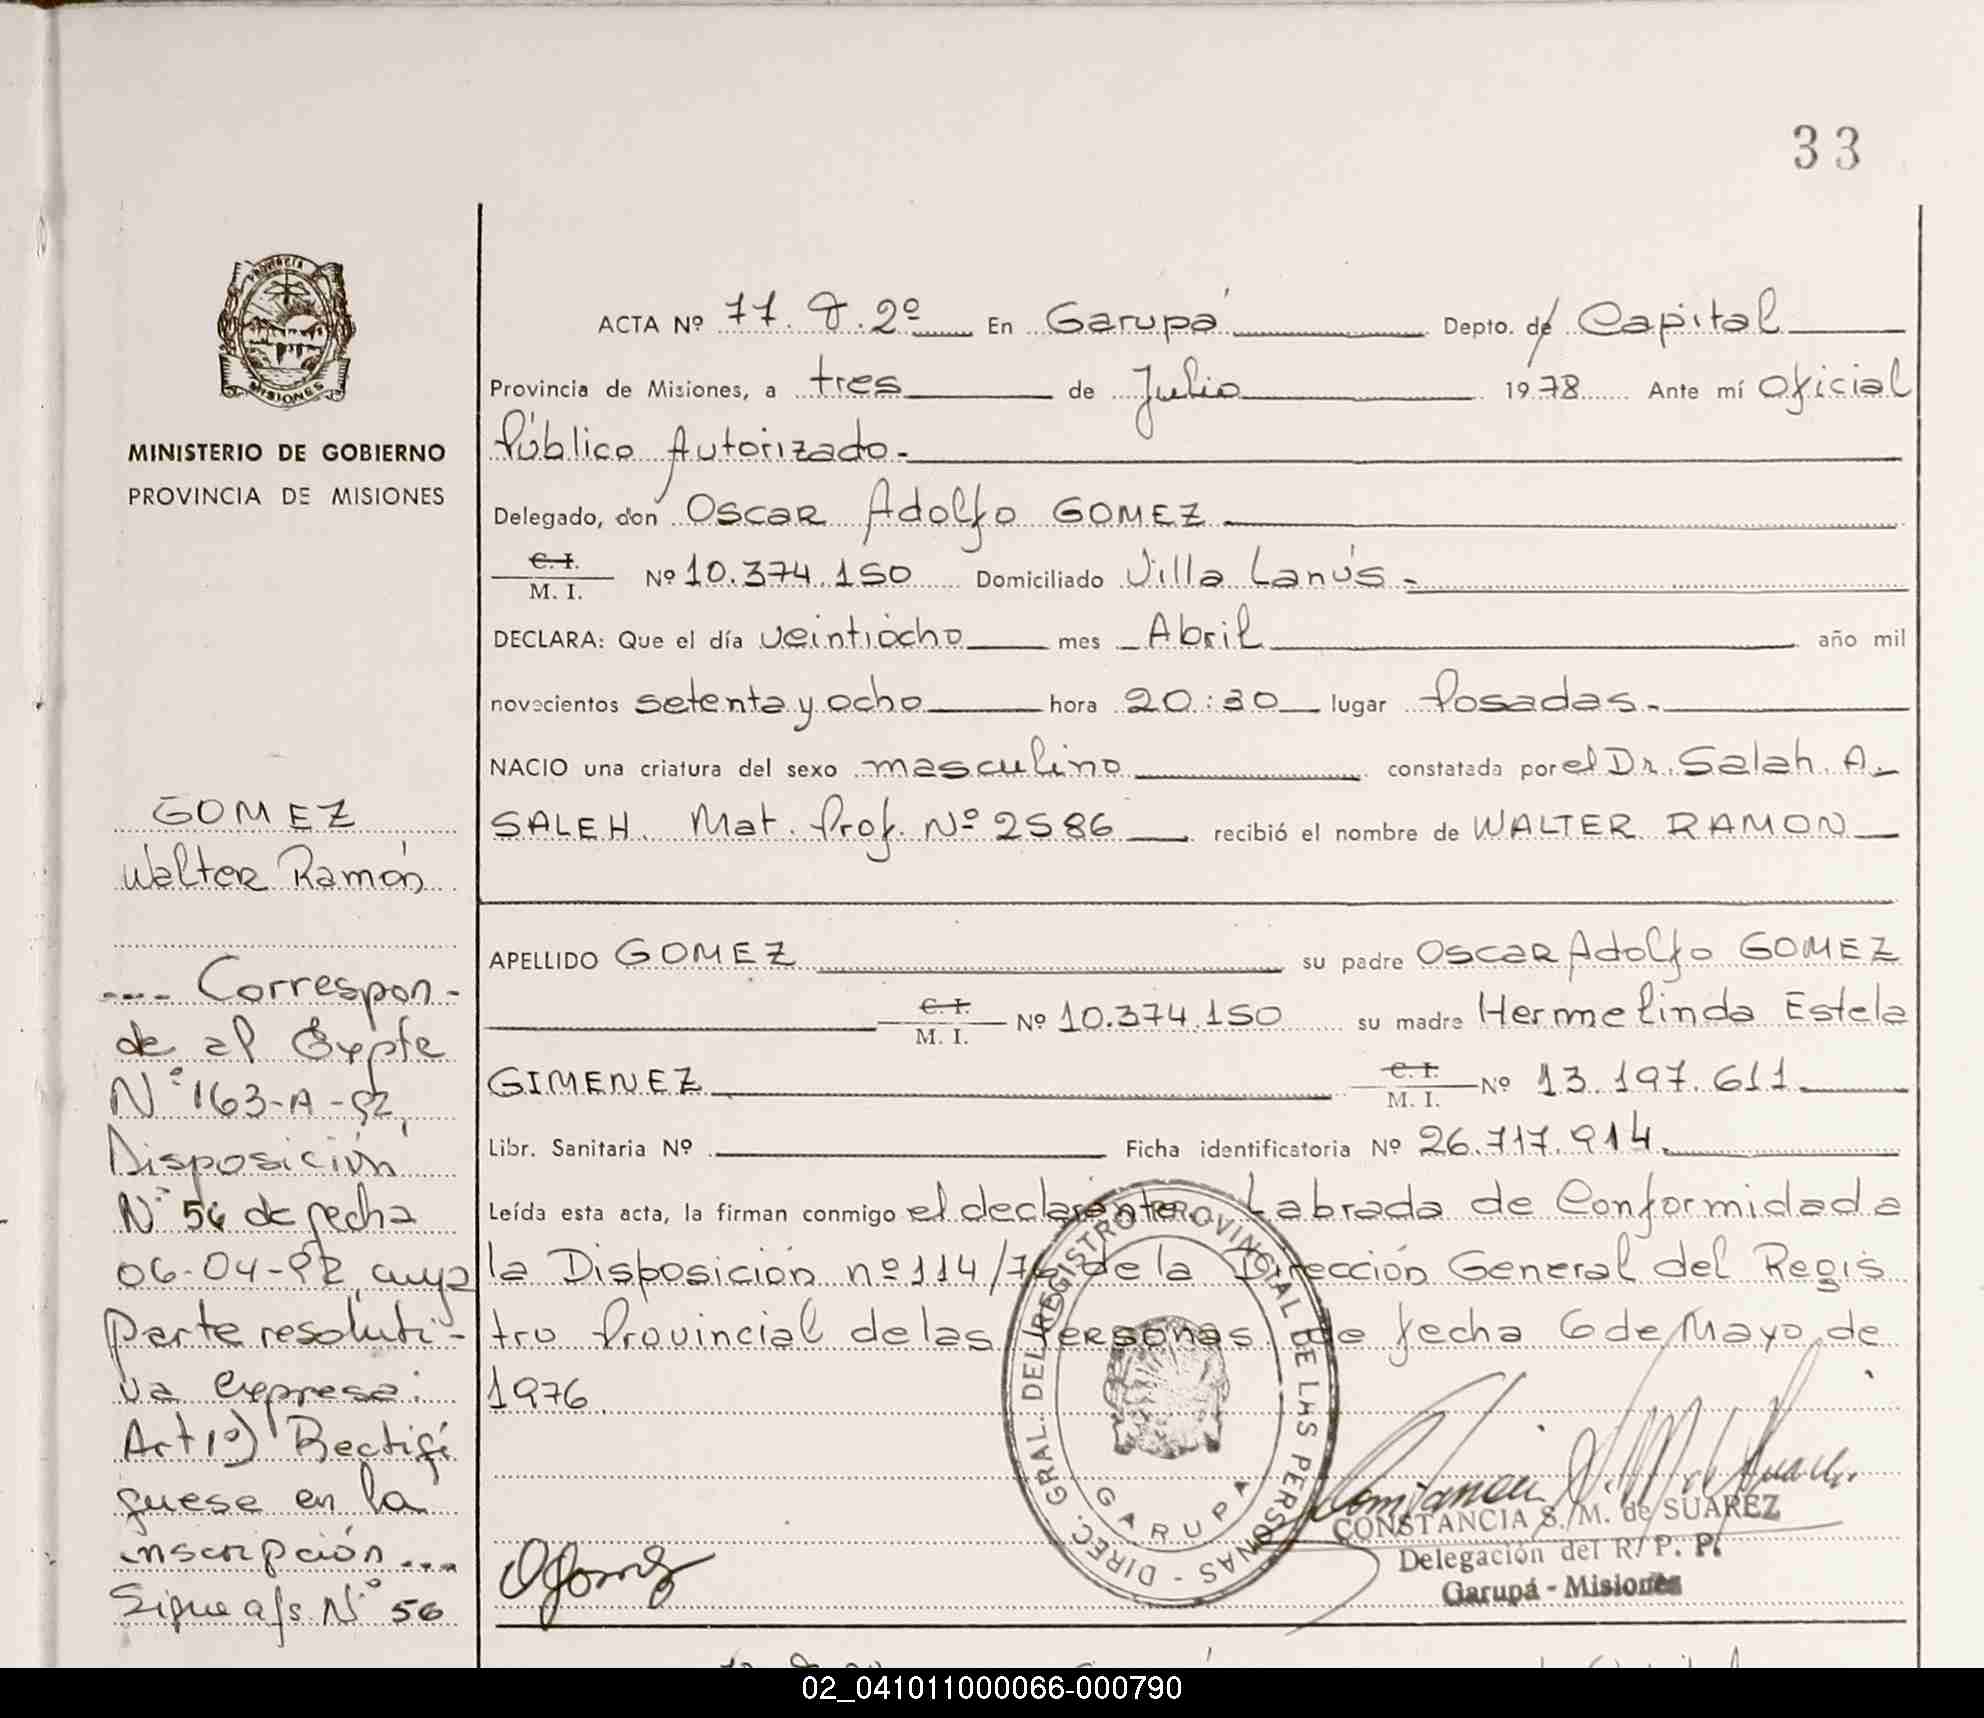 33
Provincia
MISIONES
MINISTERIO DE GOBIERNO
PROVINCIA DE MISIONES
GOMEZ
Walter Ramón
---- Correspon-
de al Expte
Nº 163-A-82,
Disposición
Nº 56 de fecha
06-04-82, cuya
parte resoluti-
va expresa:
Art 1º) Rectifí
quese en la
inscripción ---
Sigue a fs. Nº 56
ACTA Nº 77. T. 2º En Garupá Depto. de Capital
Provincia de Misiones, a tres de Julio 1978 Ante mí Oficial
Público Autorizado.-
Delegado, don Oscar Adolfo GOMEZ
C. I.
M. I. Nº 10.374.150 Domiciliado Villa Lanús.-
DECLARA: Que el día veintiocho mes Abril año mil
novecientos setenta y ocho hora 20:30 lugar Posadas.-
NACIO una criatura del sexo masculino constatada por el Dr. Salah. A.
SALEH. Mat. Prof. Nº 2586 recibió el nombre de WALTER RAMON
APELLIDO GOMEZ su padre Oscar Adolfo GOMEZ
C. I.
M. I. Nº 10.374.150 su madre Hermelinda Estela
GIMENEZ C. I.
M. I. Nº 13.197.611
Libr. Sanitaria Nº Ficha identificatoria Nº 26.717.914.
Leída esta acta, la firman conmigo el declarante. Labrada de Conformidad a
la Disposición nº 114/76 de la Dirección General del Regis
tro Provincial de las Personas, de fecha 6 de Mayo de
1976.
DIREC. GRAL. DEL REGISTRO PROVINCIAL DE LAS PERSONAS -
GARUPA
OGomez
CONSTANCIA S. M. de SUAREZ
Delegación del R. P. P.
Garupá - Misiones
02_041011000066-000790